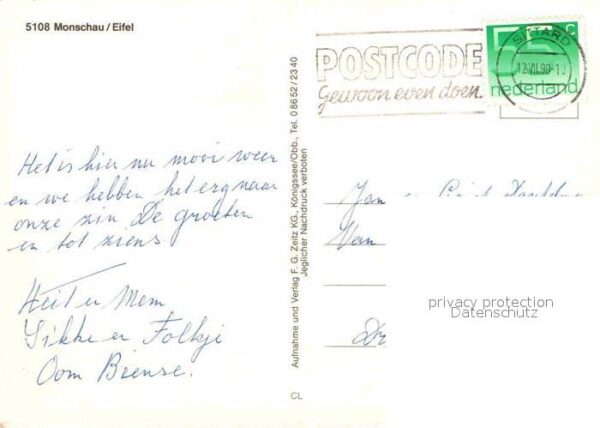 5108 Monschau/Eifel
Het is hier nu mooi weer
en we hebben het erg naar
onze zin. De groeten
en tot ziens.
Heit en Mem
Sikke en Folkje
Oom Bense.
Aufnahme und Verlag F. G. Zeitz KG., Königssee/Obb., Tel. 0 86 52 / 23 40
Jeglicher Nachdruck verboten
CL
POSTCODE
Gewoon even doen.
SITTARD
12.VII.90
55 c
nederland
Jan
Van
privacy protection
Datenschutz
Dr